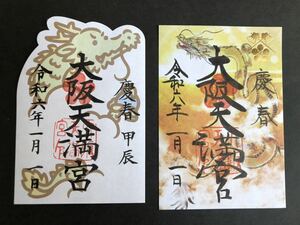 慶春 甲辰
大阪天満宮
令和六年一月一日
慶春
大阪天満宮
令和八年一月一日